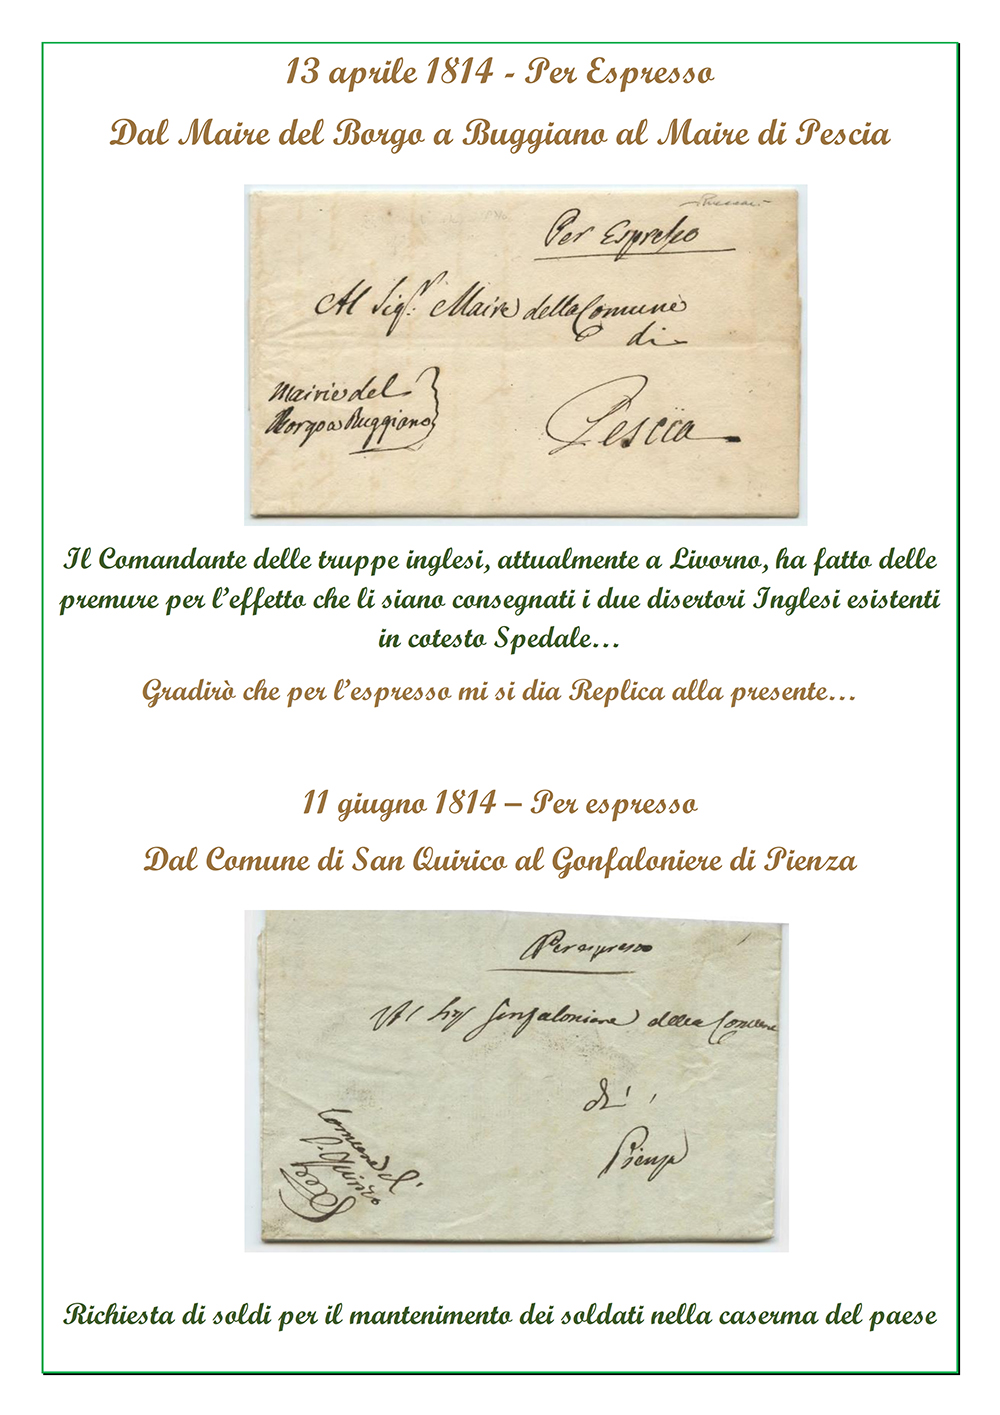 13 aprile 1814 - Per Espresso
Dal Maire del Borgo a Buggiano al Maire di Pescia
Per Espresso
Al Sigr. Maire della Comune
di
Mairie del
Borgo a Buggiano
Pescia
Il Comandante delle truppe inglesi, attualmente a Livorno, ha fatto delle
premure per l'effetto che li siano consegnati i due disertori Inglesi esistenti
in cotesto Spedale...
Gradirò che per l'espresso mi si dia Replica alla presente...
11 giugno 1814 – Per espresso
Dal Comune di San Quirico al Gonfaloniere di Pienza
Per espresso
Al Sig Gonfaloniere della Comune
di
Pienza
Comune di
S. Quirico
Richiesta di soldi per il mantenimento dei soldati nella caserma del paese